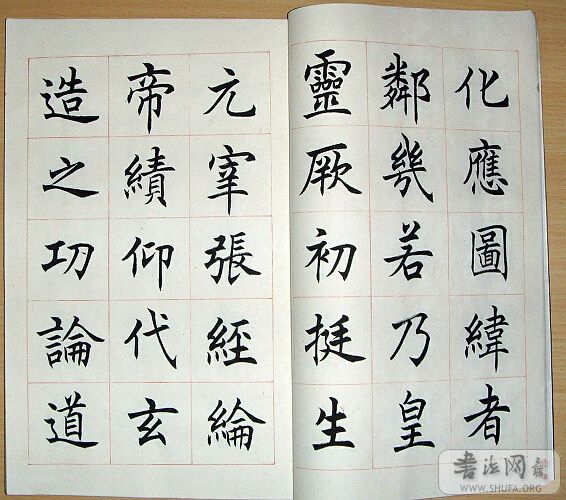 化應圖緯者
鄰幾若乃皇
靈厥初挺生
元宰張經綸
帝績仰代玄
造之功論道
书法网
WWW.SHUFA.ORG